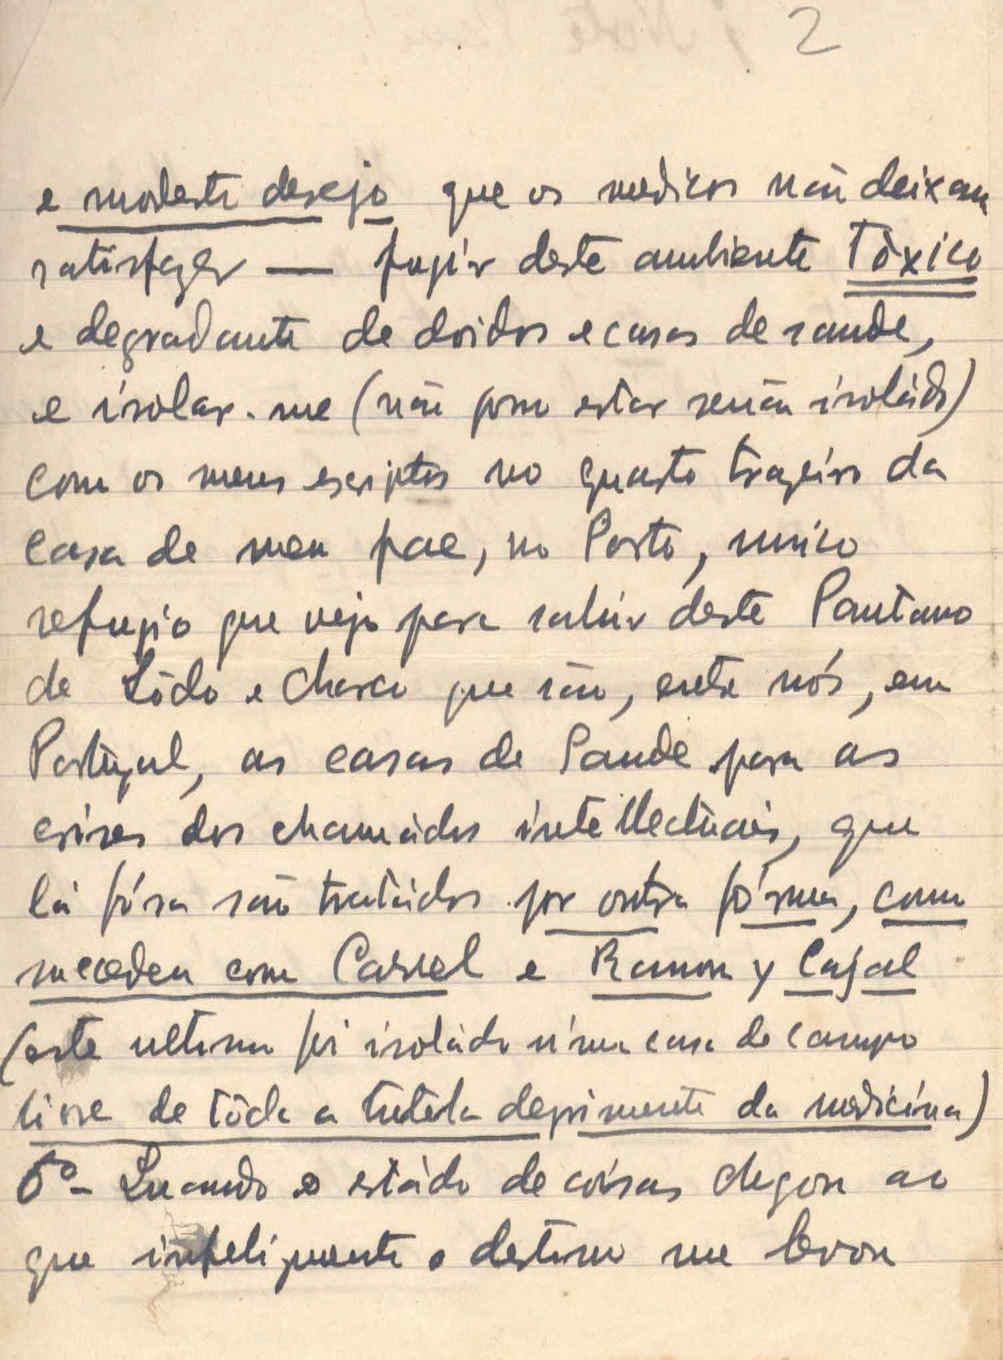 2
e modesto desejo que os medicos não deixam
satisfazer — fugir deste ambiente Tóxico
e degradante de doidos e casas de saude,
e isolar-me (não posso estar senão isoládo)
com os meus escriptos no quarto trazeiro da
casa de meu pae, no Porto, unico
refugio que vejo para sahir deste Pantano
de Lôdo e charco que são, entre nós, em
Portugal, as casas de Saude para as
crises dos chamádos intellectuais, que
lá fóra são tratádos por outra fórma, como
succedeu com Carrel e Ramon y Cajal
(este ultimo foi isoládo n'uma casa de campo
livre de tôda a tutela deprimente da medicina)
6º- Quando o estádo de coisas chegou ao
que infelizmente o destino me levou